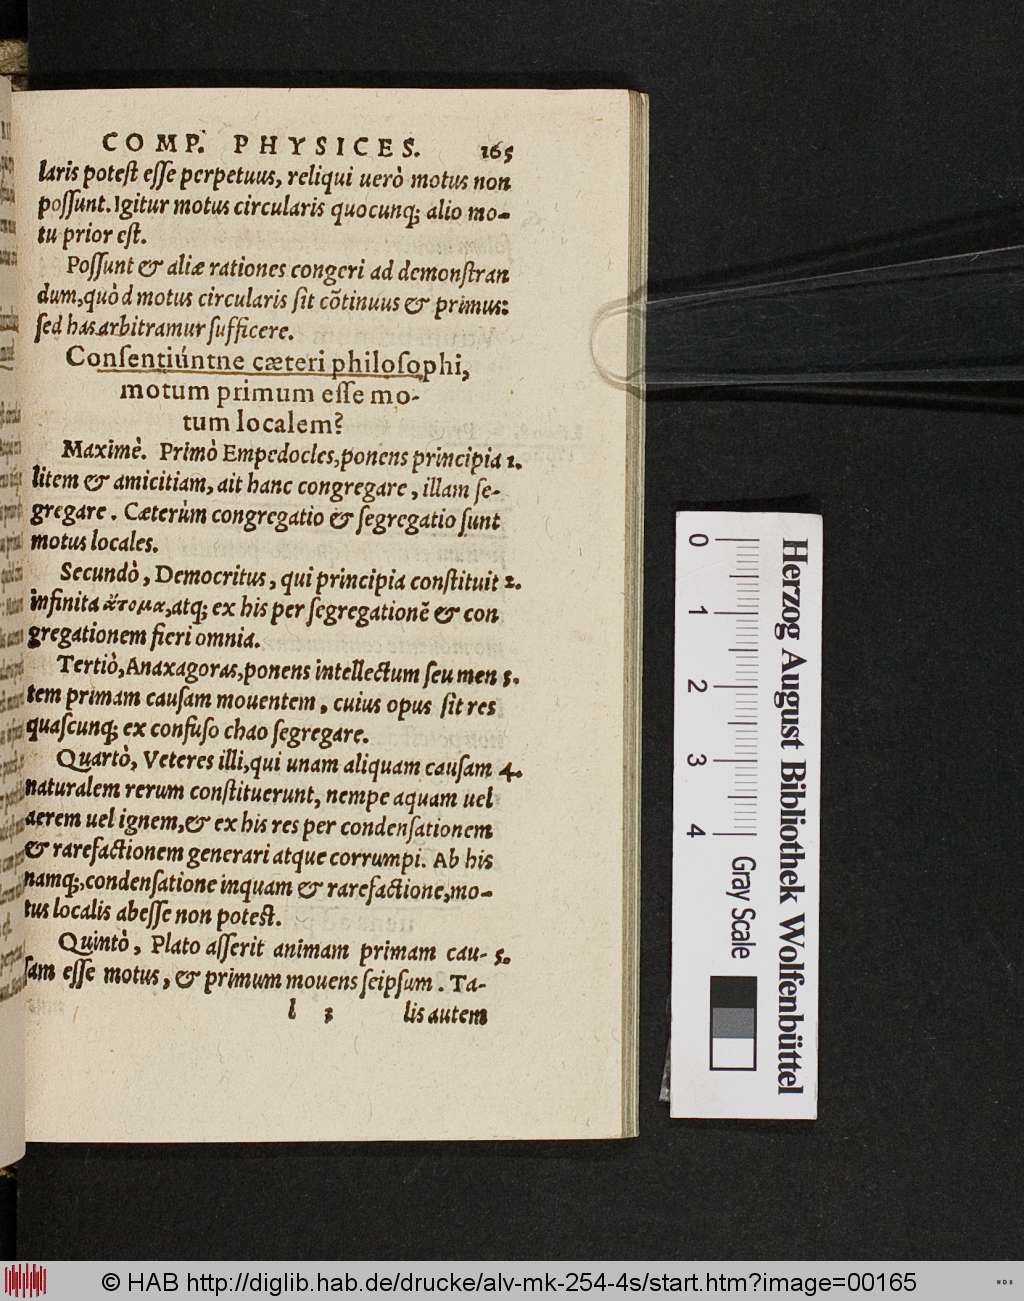 COMP. PHYSICES. 165
laris potest esse perpetuus, reliqui uerò motus non
possunt. Igitur motus circularis quocunq; alio mo-
tu prior est.
Possunt & aliæ rationes congeri ad demonstran
dum, quòd motus circularis sit cõtinuus & primus:
sed has arbitramur sufficere.
Consentiúntne cæteri philosophi,
motum primum esse mo-
tum localem?
Maximè. Primò Empedocles, ponens principia 1.
litem & amicitiam, ait hanc congregare, illam se-
gregare. Cæterùm congregatio & segregatio sunt
motus locales.
Secundò, Democritus, qui principia constituit 2.
infinita ἄτομα, atq; ex his per segregationẽ & con
gregationem fieri omnia.
Tertiò, Anaxagoras, ponens intellectum seu men 3.
tem primam causam mouentem, cuius opus sit res
quascunq; ex confuso chao segregare.
Quartò, Veteres illi, qui unam aliquam causam 4.
naturalem rerum constituerunt, nempe aquam uel
aerem uel ignem, & ex his res per condensationem
& rarefactionem generari atque corrumpi. Ab his
namq;, condensatione inquam & rarefactione, mo-
tus localis abesse non potest.
Quintò, Plato asserit animam primam cau- 5.
sam esse motus, & primum mouens seipsum. Ta-
l 3 lis autem
0 1 2 3 4 Gray Scale
Herzog August Bibliothek Wolfenbüttel
© HAB http://diglib.hab.de/drucke/alv-mk-254-4s/start.htm?image=00165